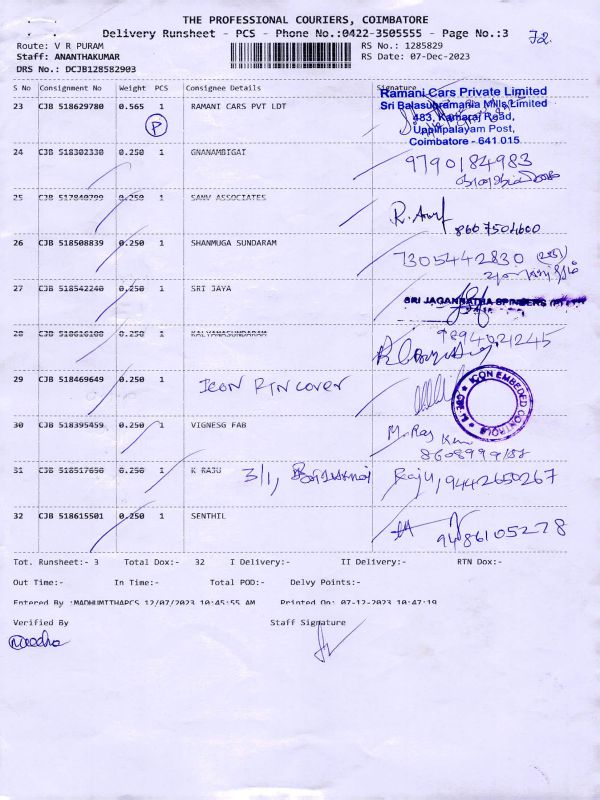 THE PROFESSIONAL COURIERS, COIMBATORE
Delivery Runsheet - PCS - Phone No.:0422-3505555 - Page No.:3
Route: V R PURAM
RS No.: 1285829
Staff: ANANTHAKUMAR
RS Date: 07-Dec-2023
DRS No.: DCJB128582903
S No Consignment No Weight PCS Consignee Details Signature
23 CJB 518629780 0.565 1 RAMANI CARS PVT LDT
P
Ramani Cars Private Limited
Sri Balasubramania Mills Limited
483, Kamaraj Road,
Uppilipalayam Post,
Coimbatore - 641 015
24 CJB 518302330 0.250 1 GNANAMBIGAI
9790184983
25 CJB 517840799 0.250 1 SANV ASSOCIATES
8667504600
26 CJB 518508839 0.250 1 SHANMUGA SUNDARAM
7305442830
27 CJB 518542240 0.250 1 SRI JAYA
SRI JAGANNATHA SPINNERS (P)
28 CJB 518616108 0.250 1 KALYANASUNDARAM
9894021245
29 CJB 518469649 0.250 1 ICON PIN COVER
ICON EMBEDED CONTROLS
30 CJB 518395459 0.250 1 VIGNESG FAB
M. Raj Kum
31 CJB 518517656 0.250 1 K RAJU 3/1, Raju, 9442650267
32 CJB 518615501 0.250 1 SENTHIL
9486105278
Tot. Runsheet:- 3 Total Dox:- 32 I Delivery:- II Delivery:- RTN Dox:-
Out Time:- In Time:- Total POD:- Delvy Points:-
Entered By :MADHUMITHAPCS 12/07/2023 10:45:55 AM Printed On: 07-12-2023 10:47:19
Verified By Staff Signature